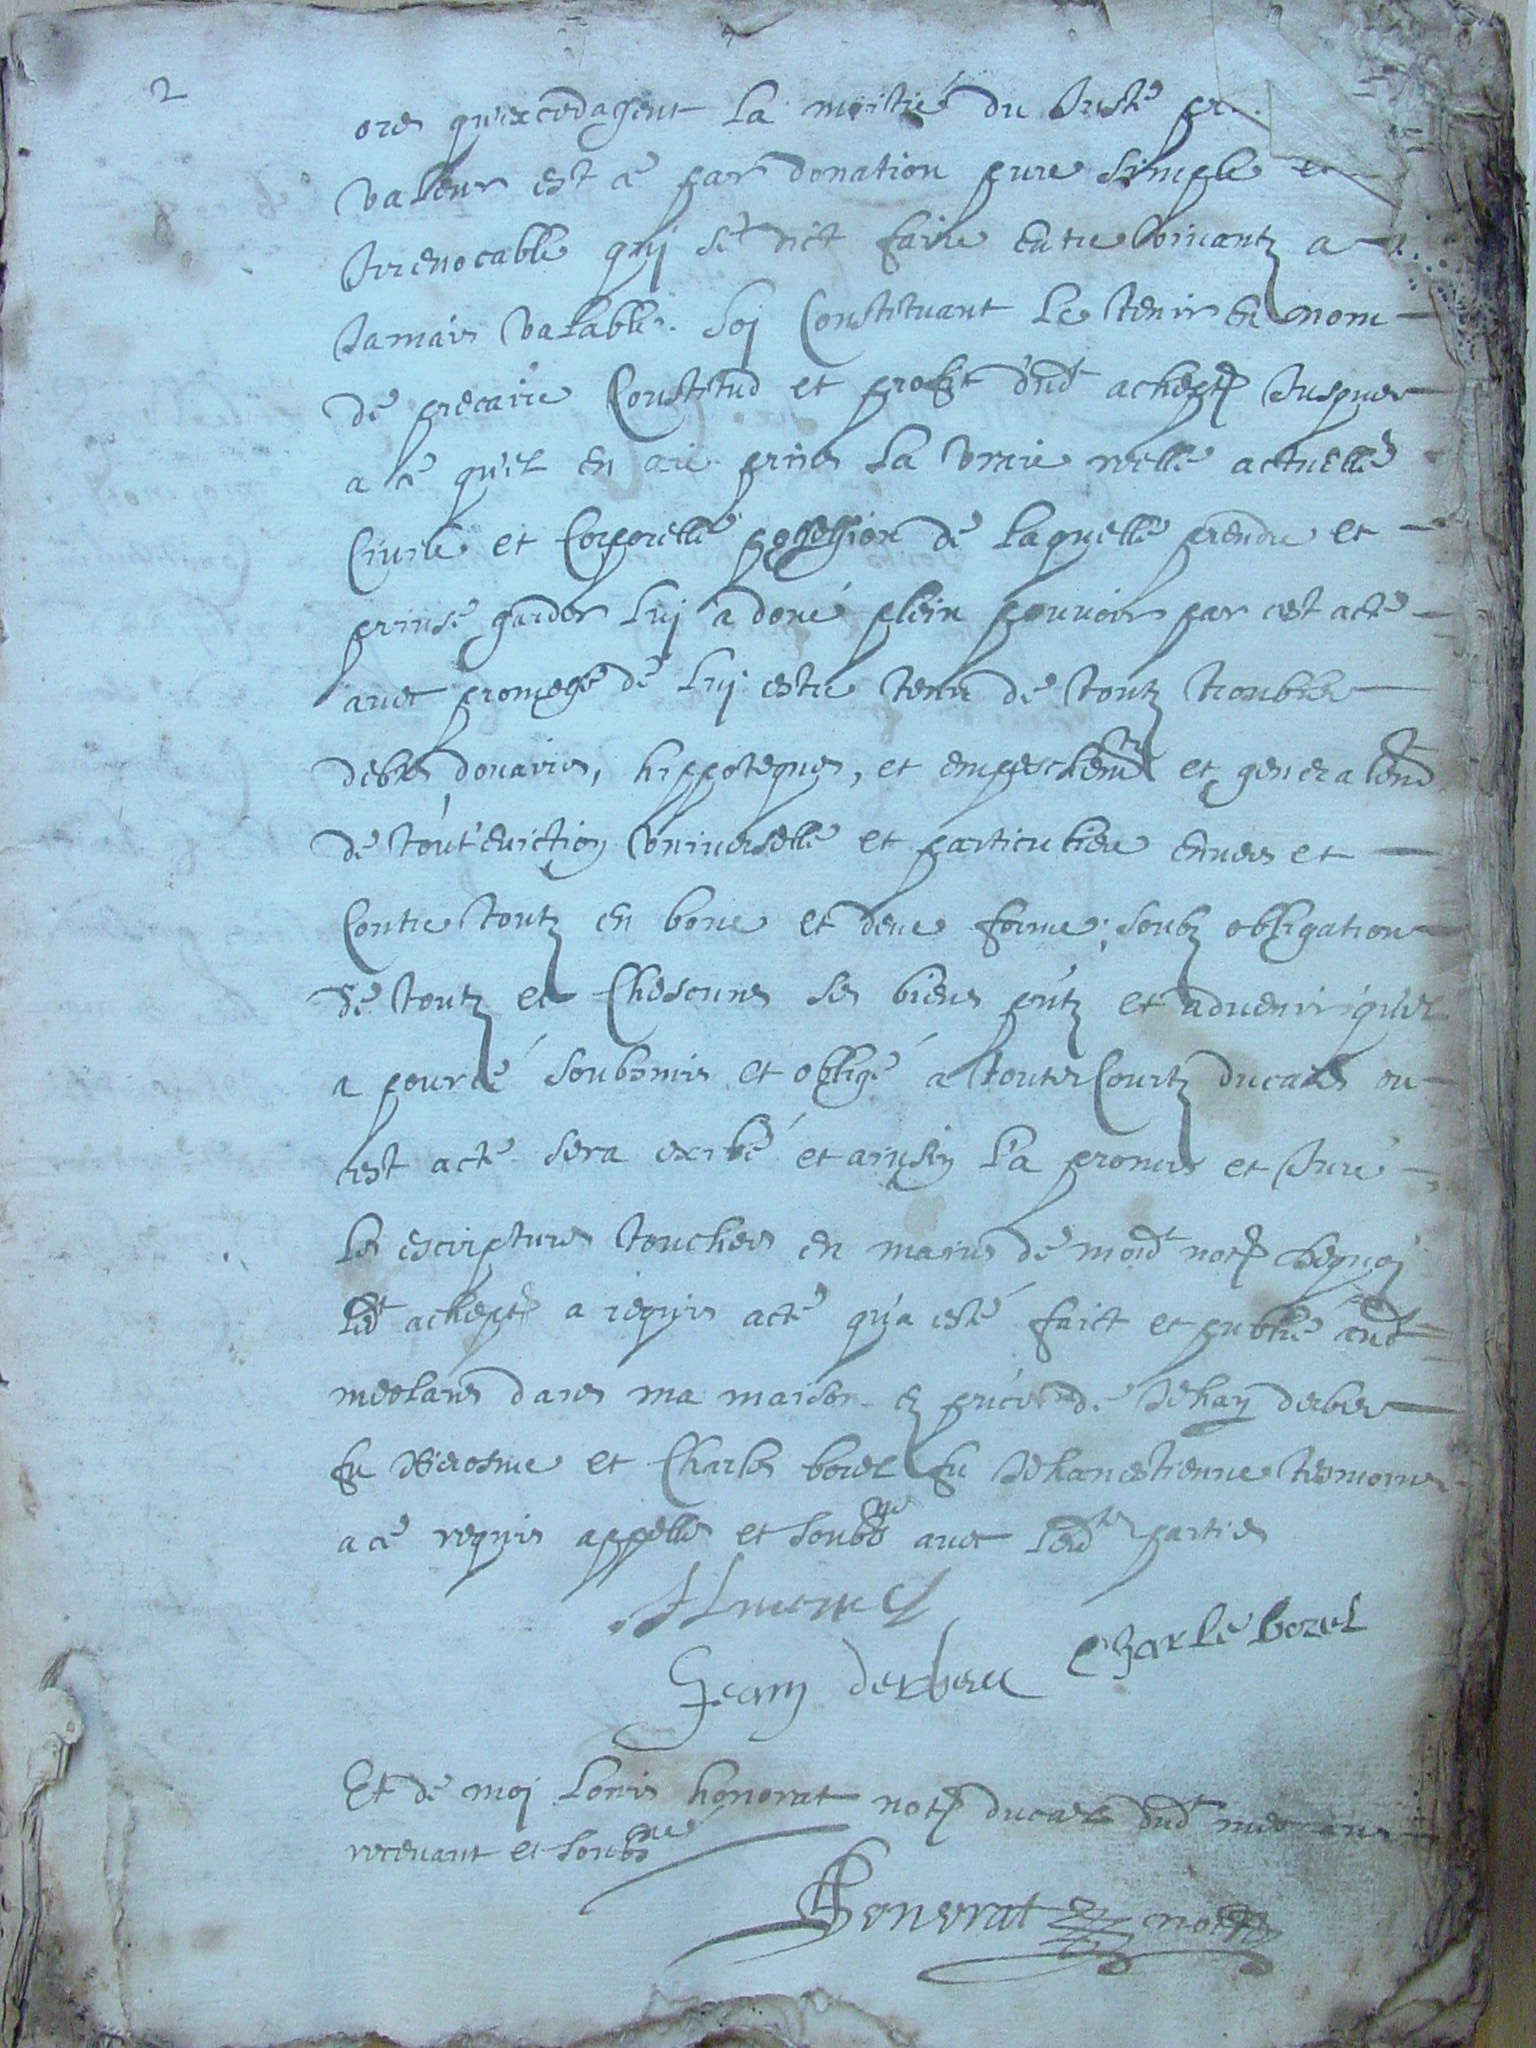 2
ores qu'excedassent la moitié du juste pr
valeur est a par donation pure simple et
irrevocable qui se dict faire entre vivantz a
jamais valable. Soj constituant le tenir en nom
de precaire constitud et profit dud achept^r jusques
a ce qu'il en aie prins la vraie reelle actuelle
civile et corporelle possession de laquelle prendre et
prinse garder luj a doné plein pouvoir par cest acte
avec promesse de luj estre tenu de toutz troubles
debtes, douaires, hippoteques, et empeschem^tz et generalem^t
de tout'eviction universelle et particuliere envers et
contre toutz en bone et deue forme, soubz obligation
de toutz et chescuns ses biens p̃ntz et advenir qu'il
a pour ce soubsmis et obligé a toutes courtz ducales ou
cest acte sera exibé et ainsin l'a promis et juré
les escriptures touchees en mains de moid^t not^e de quoj
led^t achept^r a requis acte qu'a esté faict et publié aud^t
meolans dans ma maison en p̃nce de Jehan derbes
fu Hierosme et Charles borel fu Jehan estienne tesmoins
a ce requis appellés et soubz^nes avec lesd^tes parties
Jean derbeu Charle borel
Et de moj Louis honorat not^e ducal dud^t meolans
recevant et soubz^né
Honorat not^e